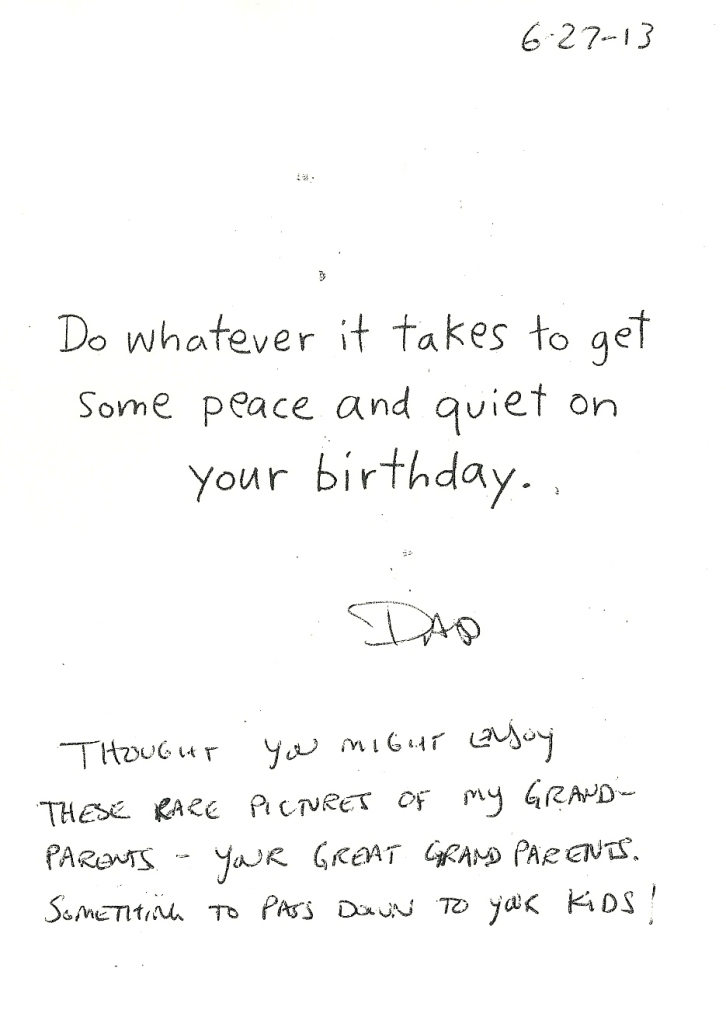 6-27-13
Do whatever it takes to get
some peace and quiet on
your birthday.
DAD
THOUGHT YOU MIGHT ENJOY
THESE RARE PICTURES OF MY GRAND-
PARENTS - YOUR GREAT GRANDPARENTS.
SOMETHING TO PASS DOWN TO YOUR KIDS!